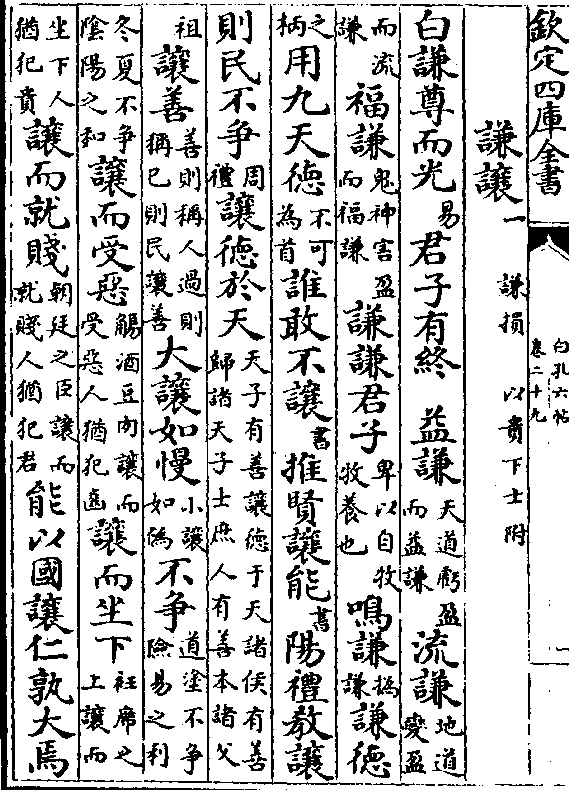 欽定四庫全書
白孔六帖
卷二十九
一
謙讓一 謙損 以貴下士附
白謙尊而光易君子有終 益謙天道虧盈而益謙流謙地道變盈
而流謙福謙鬼神害盈而福謙謙謙君子卑以自牧牧養也鳴謙撝謙謙德
之柄用九天德不可為首誰敢不讓書推賢讓能書陽禮教讓
則民不争周禮讓德於天天子有善讓德于天諸侯有善歸諸天子士庶人有善本諸父
祖讓善善則稱人過則稱已則民讓善大讓如慢小讓如偽不争道塗不争險易之利
冬夏不争陰陽之和讓而受惡觴酒豆肉讓而受惡人猶犯齒讓而坐下衽席之上讓而
坐下人猶犯貴讓而就賤朝廷之臣讓而就賤人猶犯君能以國讓仁孰大焉